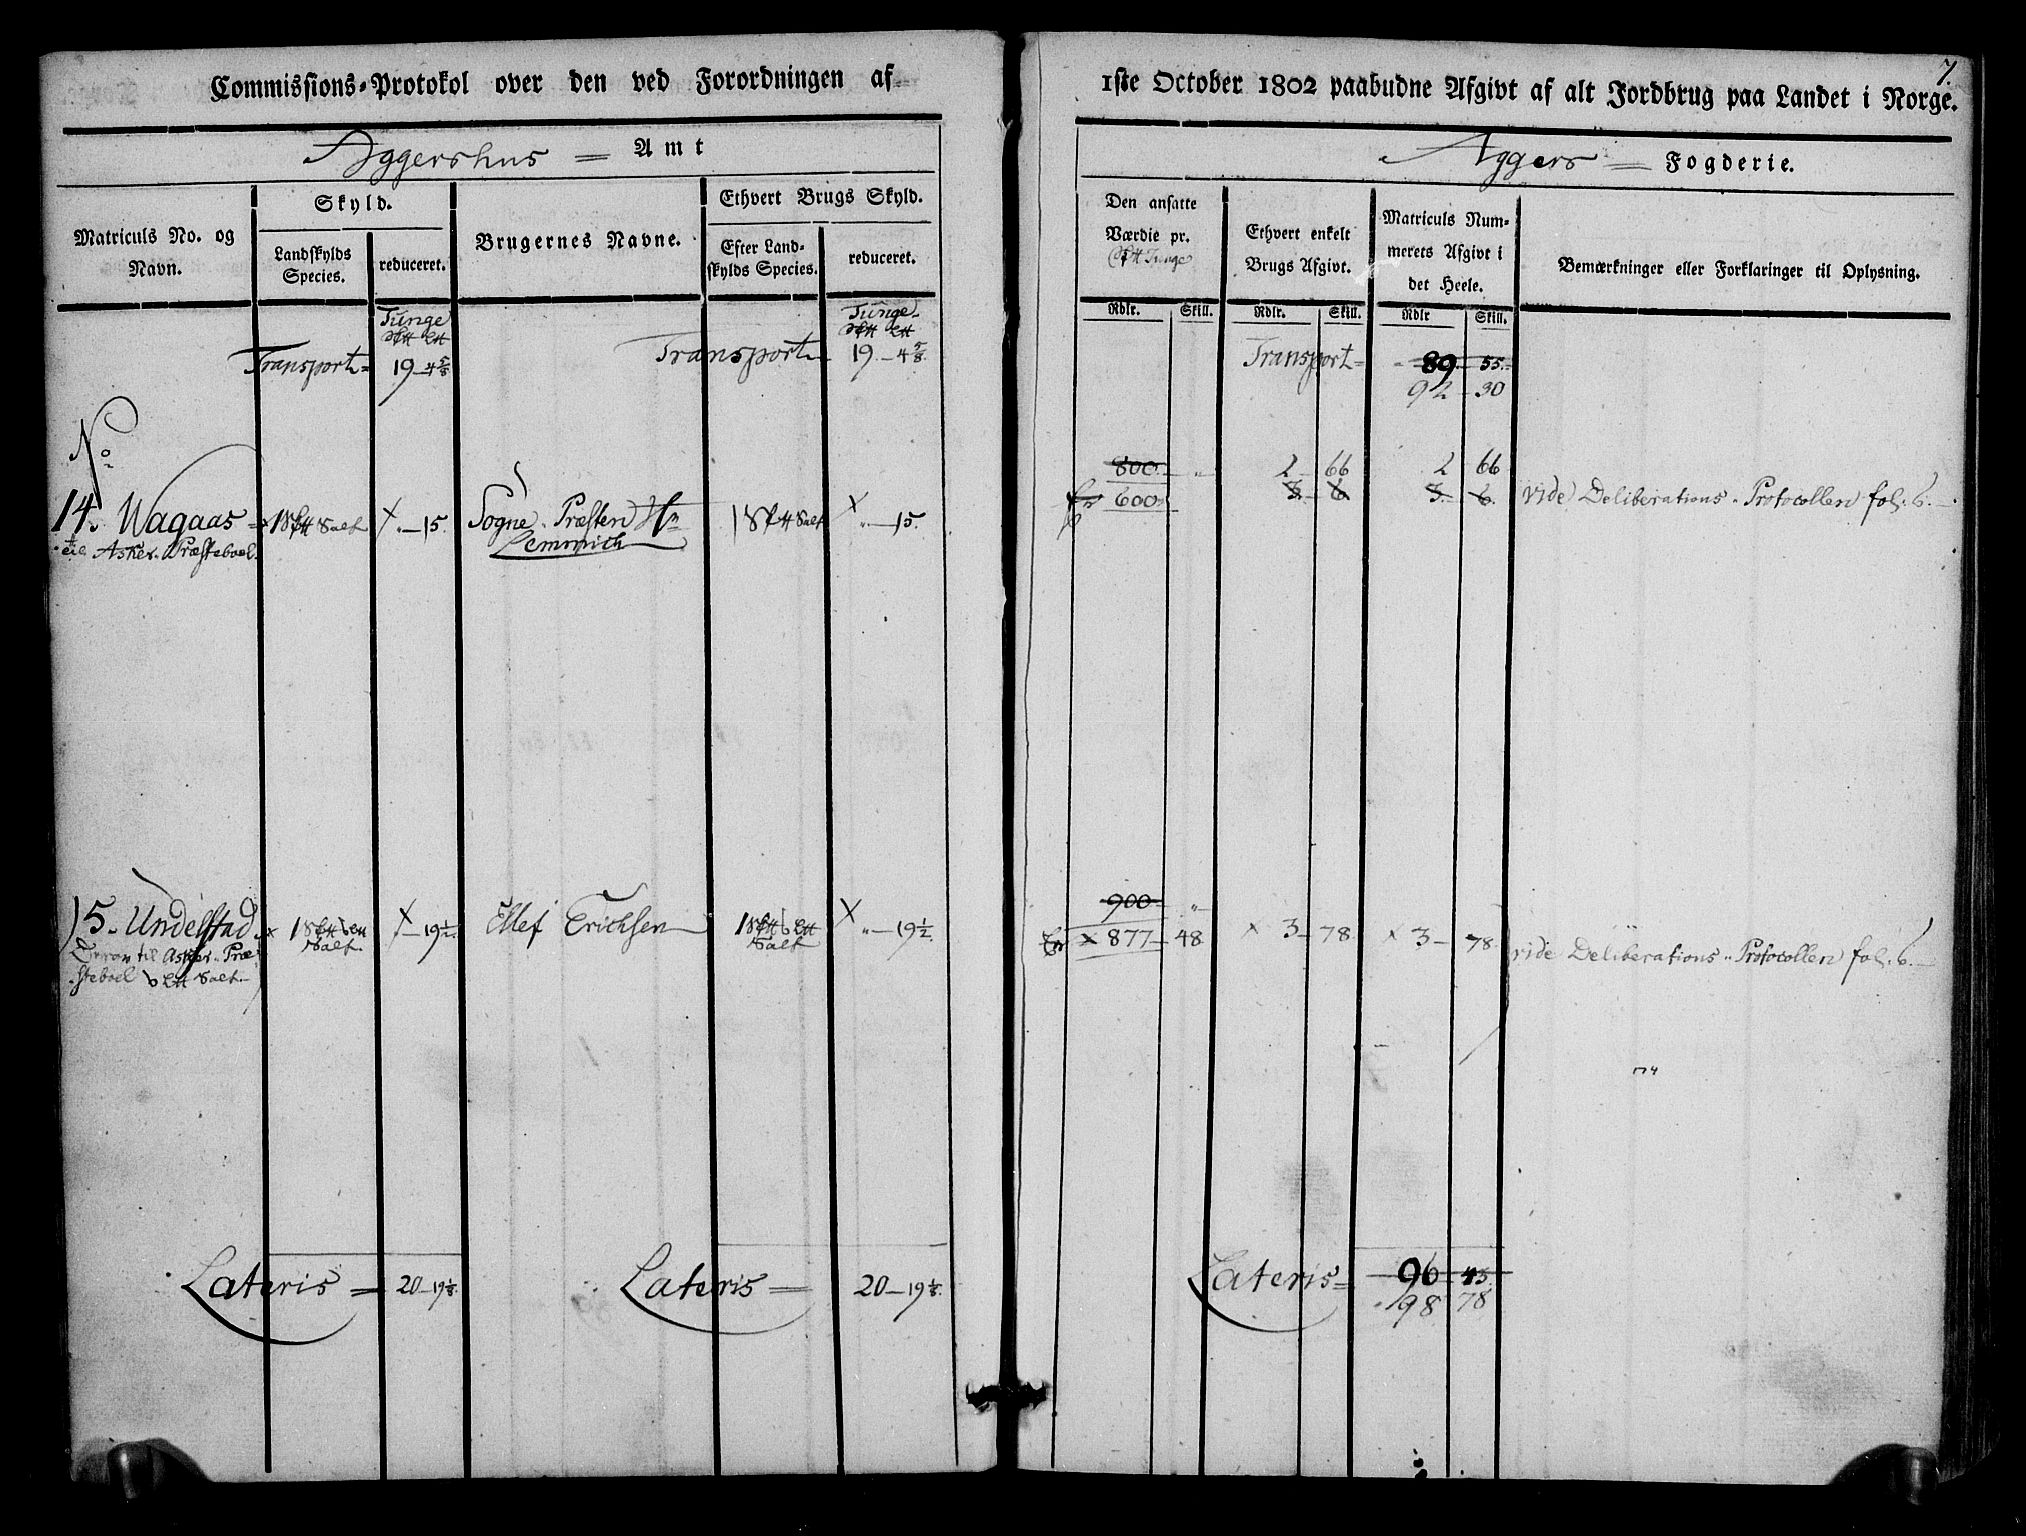 Commissions-Protokol over den ved Forordningen af
Aggershus = Amt
Matriculs No. og Navn.
Skyld.
Landskylds Species.
reduceret.
Brugernes Navne.
Ethvert Brugs Skyld.
Efter Landskylds Species.
reduceret.
Tunge
Tunge
Transport = 19 - 4 5/8
Transport 19 - 4 5/8
No
14. Wagaas 1 Salt × " - 15. Sogne Præsten Hr 1 Salt × " - 15.
Asker Præsteboel. Lemmich
15. Undelstad × 1 Salt × - 19 1/2 Ellef Erichsen 1 Salt × " - 19 1/2
til Asker Præsteboel Salt
Lateris = 20 - 19 1/8 Lateris = 20 - 19 1/8
7.
1ste October 1802 paabudne Afgivt af alt Jordbrug paa Landet i Norge.
Aggers = Fogderie.
Den ansatte Værdie pr. Tunge
Ethvert enkelt Brugs Afgivt.
Matriculs Nummerets Afgivt i det Heele.
Bemærkninger eller Forklaringer til Oplysning.
Rdlr. Skill. Rdlr. Skill. Rdlr Skill.
Transport = 89 55
92 - 30
800 " 2 66 2 66
600 3 6 3 6 vide Deliberations Protocollen fol. 6.
900 "
× 877 - 48. × 3 - 78. × 3 - 78. vide Deliberations Protocollen fol. 6.
Lateris = 96 45
98 78